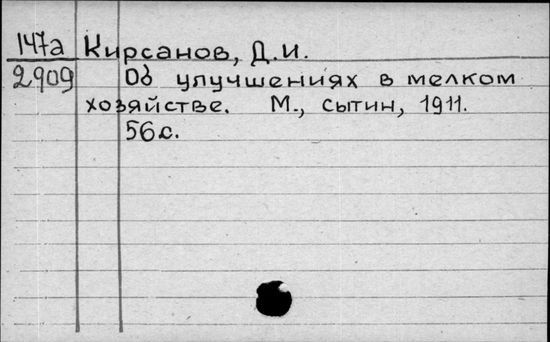 147а Кирсанов, Д.И.
2909 Об улучшениях в мелком
хозяйстве. М., сытин, 1911.
56с.